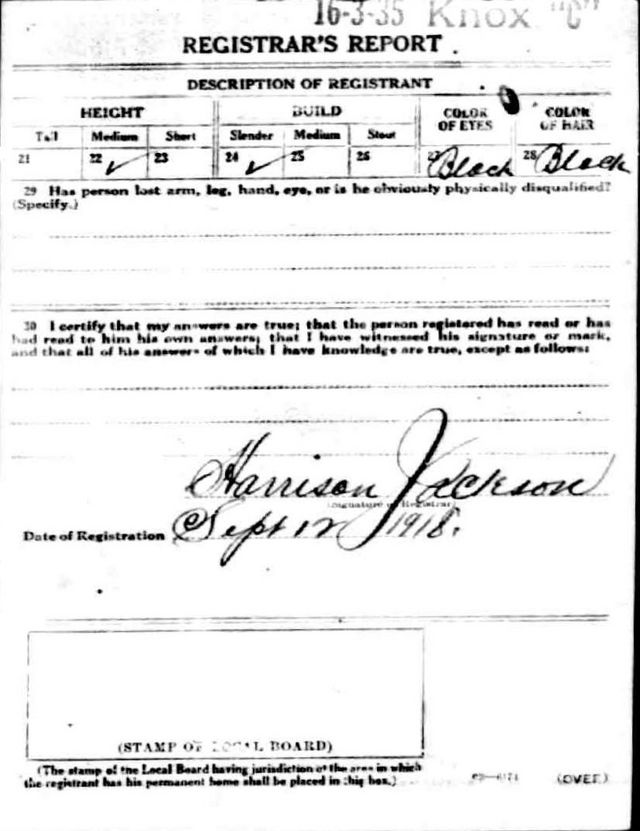 16-3-35 Knox "C"
REGISTRAR'S REPORT
DESCRIPTION OF REGISTRANT
HEIGHT BUILD COLOR OF EYES COLOR OF HAIR
Tall Medium Short Slender Medium Stout
21 22 ✓ 23 24 ✓ 25 26 27 Black 28 Black
29 Has person lost arm, leg, hand, eye, or is he obviously physically disqualified?
(Specify.)
30 I certify that my answers are true; that the person registered has read or has
had read to him his own answers; that I have witnessed his signature or mark,
and that all of his answers of which I have knowledge are true, except as follows:
Harrison Jackson
(Signature of Registrar)
Date of Registration Sept 12 1918.
(STAMP OF LOCAL BOARD)
(The stamp of the Local Board having jurisdiction of the area in which
the registrant has his permanent home shall be placed in this box.)
(OVER)